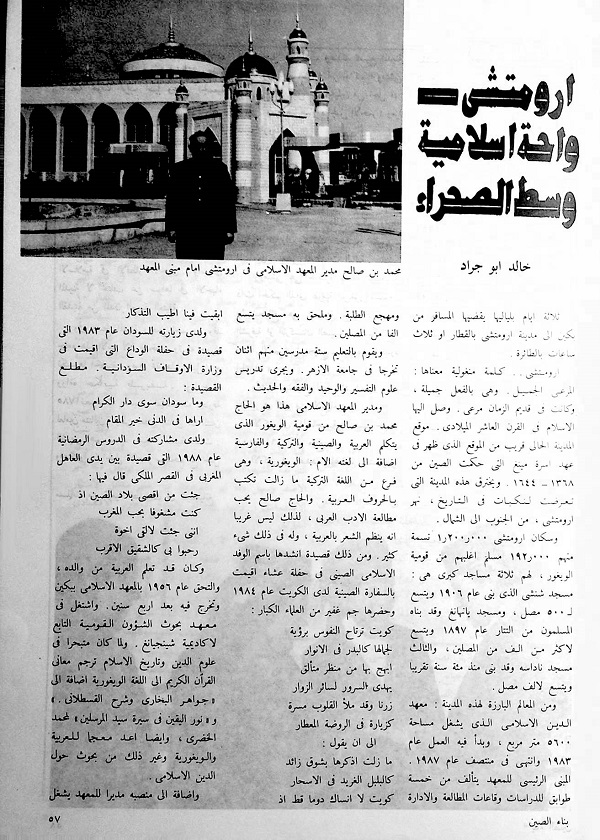 ارومتشى ــ
واحة اسلامية
وسط الصحراء
خالد ابو جراد
محمد بن صالح مدير المعهد الاسلامى فى ارومتشى امام مبنى المعهد
ثلاثة ايام بلياليها يقضيها المسافر من
بكين الى مدينة ارومتشى بالقطار او ثلاث
ساعات بالطائرة .
ارومتشى .. كلمة منغولية معناها :
المرعى الجميل . وهى بالفعل جميلة ،
وكانت فى قديم الزمان مرعى . وصل اليها
الاسلام فى القرن العاشر الميلادى . موقع
المدينة الحالى قريب من الموقع الذى ظهر فى
عهد اسرة مينغ التى حكمت الصين من
١٣٦٨ ــ ١٦٤٤ . ويخترق هذه المدينة التى
تعرضت لنكسات فى التاريخ ، نهر
ارومتشى ، من الجنوب الى الشمال .
وسكان ارومتشى ١٫٢٠٠٫٠٠٠ نسمة
منهم ١٩٢٫٠٠٠ مسلم اغلبهم من قومية
الويغور ، لهم ثلاثة مساجد كبرى هى :
مسجد شنشى الذى بنى عام ١٩٠٦ ويتسع
لـ ٥٠٠ مصل ، ومسجد يانهانغ وقد بناه
المسلمون من التتار عام ١٨٩٧ ويتسع
لاكثر من الف من المصلين ، والثالث
مسجد ناداسه وقد بنى منذ مئة سنة تقريبا
ويتسع لالف مصل .
ومن المعالم البارزة لهذه المدينة : معهد
الدين الاسلامى الذى يشغل مساحة
٥٦٠٠ متر مربع ، وبدأ فيه العمل عام
١٩٨٣ وانتهى فى منتصف عام ١٩٨٧ .
المبنى الرئيسى للمعهد يتألف من خمسة
طوابق للدراسات وقاعات المطالعة والادارة
ومهجع الطلبة . وملحق به مسجد يتسع
الفا من المصلين .
ويقوم بالتعليم ستة مدرسين منهم اثنان
تخرجا فى جامعة الازهر . ويجرى تدريس
علوم التفسير والوحيد والفقه والحديث .
ومدير المعهد الاسلامى هذا هو الحاج
محمد بن صالح من قومية الويغور الذى
يتكلم العربية والصينية والتركية والفارسية
اضافة الى لغته الام : الويغورية ، وهى
فرع من اللغة التركية ما زالت تكتب
بالحروف العربية . والحاج صالح يحب
مطالعة الادب العربى ، لذلك ليس غريبا
انه ينظم الشعر بالعربية ، وله فى ذلك شىء
كثير . ومن ذلك قصيدة انشدها باسم الوفد
الاسلامى الصينى فى حفلة عشاء اقيمت
بالسفارة الصينية لدى الكويت عام ١٩٨٤
وحضرها جم غفير من العلماء الكبار :
كويت ترتاح النفوس برؤية
لجمالها كالبدر فى الانوار
ابهج بها من منظر متألق
يهدى السرور لسائر الزوار
زرنا وقد ملأ القلوب مسرة
كزيارة فى الروضة المعطار
الى ان يقول :
ما زلت اذكرها بشوق زائد
كالبلبل الغريد فى الاسحار
كويت لا انساك دوما قط اذ
ابقيت فينا اطيب التذكار
ولدى زيارته للسودان عام ١٩٨٣ التى
قصيدة فى حفلة الوداع التى اقيمت فى
وزارة الاوقاف السودانية . مطلع
القصيدة :
وما سودان سوى دار الكرام
اراها فى الدنى خير المقام
ولدى مشاركته فى الدروس الرمضانية
عام ١٩٨٨ التى قصيدة بين يدى العاهل
المغربى فى القصر الملكى قال فيها :
جئت من اقصى بلاد الصين اذ
كنت مشغوفا بحب المغرب
اننى جئت لالقى اخوة
رحبوا بى كالشقيق الاقرب
وكان قد تعلم العربية من والده ،
والتحق عام ١٩٥٦ بالمعهد الاسلامى ببكين
وتخرج فيه بعد اربع سنين . واشتغل فى
معهد بحوث الشؤون القومية التابع
لاكاديمية شينجيانغ . ولما كان متبحرا فى
علوم الدين وتاريخ الاسلام ترجم معانى
القرآن الكريم الى اللغة الويغورية اضافة الى
« جواهر البخارى وشرح القسطلانى »
و « نور اليقين فى سيرة سيد المرسلين » لمحمد
الخضرى ، وايضا اعد معجما للعربية
والويغورية وغير ذلك من بحوث حول
الدين الاسلامى .
واضافة الى منصبه مديرا للمعهد يشغل
بناء الصين
٥٧